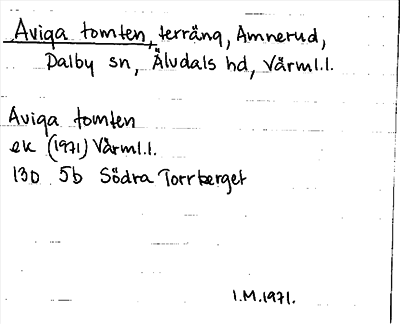 Aviga tomten, terräng, Amnerud,
Dalby sn, Älvdals hd, Värml.l.
Aviga tomten
ek (1971) Värml.l.
13D 5b Södra Torrberget
I.M.1971.